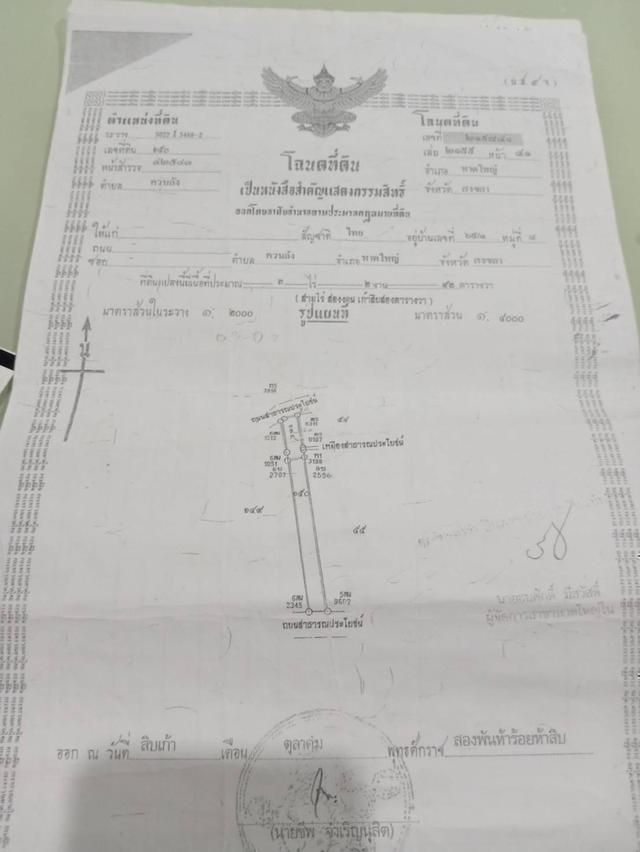 (น.ส.๔จ)
ตำแหน่งที่ดิน
ระวาง 5022 I 5468-2
เลขที่ดิน ๒๕๐
หน้าสำรวจ ๔๒๕๔๓
ตำบล ควนลัง
โฉนดที่ดิน
เลขที่
เล่ม ๒๑๕๕ หน้า ๔๑
อำเภอ หาดใหญ่
จังหวัด สงขลา
โฉนดที่ดิน
เป็นหนังสือสำคัญแสดงกรรมสิทธิ์
ออกโดยอาศัยอำนาจตามประมวลกฎหมายที่ดิน
ให้แก่ สัญชาติ ไทย อยู่บ้านเลขที่ ๖๕/๑ หมู่ที่ ๘
ถนน
ซอย ตำบล ควนลัง อำเภอ หาดใหญ่ จังหวัด สงขลา
ที่ดินแปลงนี้มีเนื้อที่ประมาณ ๓ ไร่ ๒ งาน ๙๒ ตารางวา
(สามไร่ สองงาน เก้าสิบสองตารางวา)
มาตราส่วนในระวาง ๑: ๒๐๐๐ รูปแผนที่ มาตราส่วน ๑: ๔๐๐๐
น
ถนนสาธารณประโยชน์
๕๔
เหมืองสาธารณประโยชน์
3198
2707 2596
๑๔๙
๕๕
2345
ถนนสาธารณประโยชน์
มีสวัสดิ์
ผู้จัดการสาขาหาดใหญ่ใน
ออก ณ วันที่ สิบเก้า เดือน ตุลาคม พุทธศักราช สองพันห้าร้อยห้าสิบ
(นายชีพ จำเริญนุสิต)